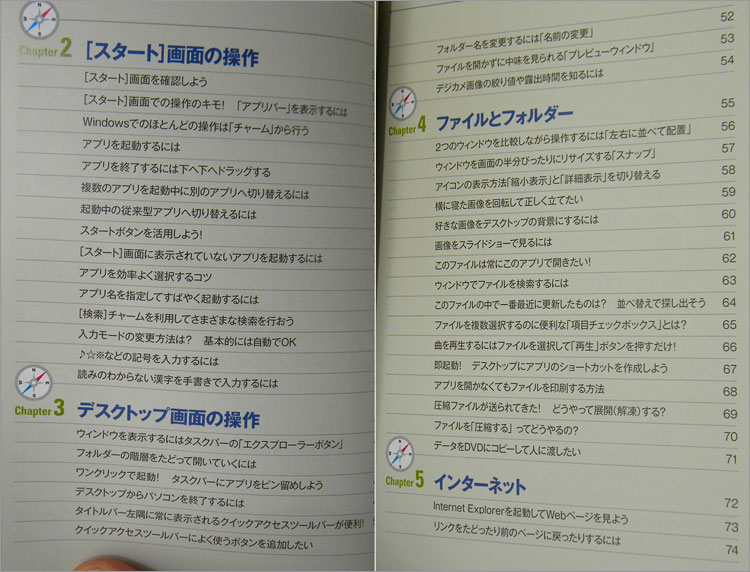 Chapter 2 [スタート]画面の操作
[スタート]画面を確認しよう
[スタート]画面での操作のキモ! 「アプリバー」を表示するには
Windowsでのほとんどの操作は「チャーム」から行う
アプリを起動するには
アプリを終了するには下へ下へドラッグする
複数のアプリを起動中に別のアプリへ切り替えるには
起動中の従来型アプリへ切り替えるには
スタートボタンを活用しよう!
[スタート]画面に表示されていないアプリを起動するには
アプリを効率よく選択するコツ
アプリ名を指定してすばやく起動するには
[検索]チャームを利用してさまざまな検索を行おう
入力モードの変更方法は? 基本的には自動でOK
♪☆※などの記号を入力するには
読みのわからない漢字を手書きで入力するには
Chapter 3 デスクトップ画面の操作
ウィンドウを表示するにはタスクバーの「エクスプローラーボタン」
フォルダーの階層をたどって開いていくには
ワンクリックで起動! タスクバーにアプリをピン留めしよう
デスクトップからパソコンを終了するには
タイトルバー左隅に常に表示されるクイックアクセスツールバーが便利!
クイックアクセスツールバーによく使うボタンを追加したい
フォルダー名を変更するには「名前の変更」 52
ファイルを開かずに中味を見られる「プレビューウィンドウ」 53
デジカメ画像の絞り値や露出時間を知るには 54
Chapter 4 ファイルとフォルダー 55
2つのウィンドウを比較しながら操作するには「左右に並べて配置」 56
ウィンドウを画面の半分ぴったりにリサイズする「スナップ」 57
アイコンの表示方法「縮小表示」と「詳細表示」を切り替える 58
横に寝た画像を回転して正しく立てたい 59
好きな画像をデスクトップの背景にするには 60
画像をスライドショーで見るには 61
このファイルは常にこのアプリで開きたい! 62
ウィンドウでファイルを検索するには 63
このファイルの中で一番最近に更新したものは? 並べ替えで探し出そう 64
ファイルを複数選択するのに便利な「項目チェックボックス」とは? 65
曲を再生するにはファイルを選択して「再生」ボタンを押すだけ! 66
即起動! デスクトップにアプリのショートカットを作成しよう 67
アプリを開かなくてもファイルを印刷する方法 68
圧縮ファイルが送られてきた! どうやって展開(解凍)する? 69
ファイルを「圧縮する」ってどうやるの? 70
データをDVDにコピーして人に渡したい 71
Chapter 5 インターネット 72
Internet Explorerを起動してWebページを見よう 73
リンクをたどったり前のページに戻ったりするには 74